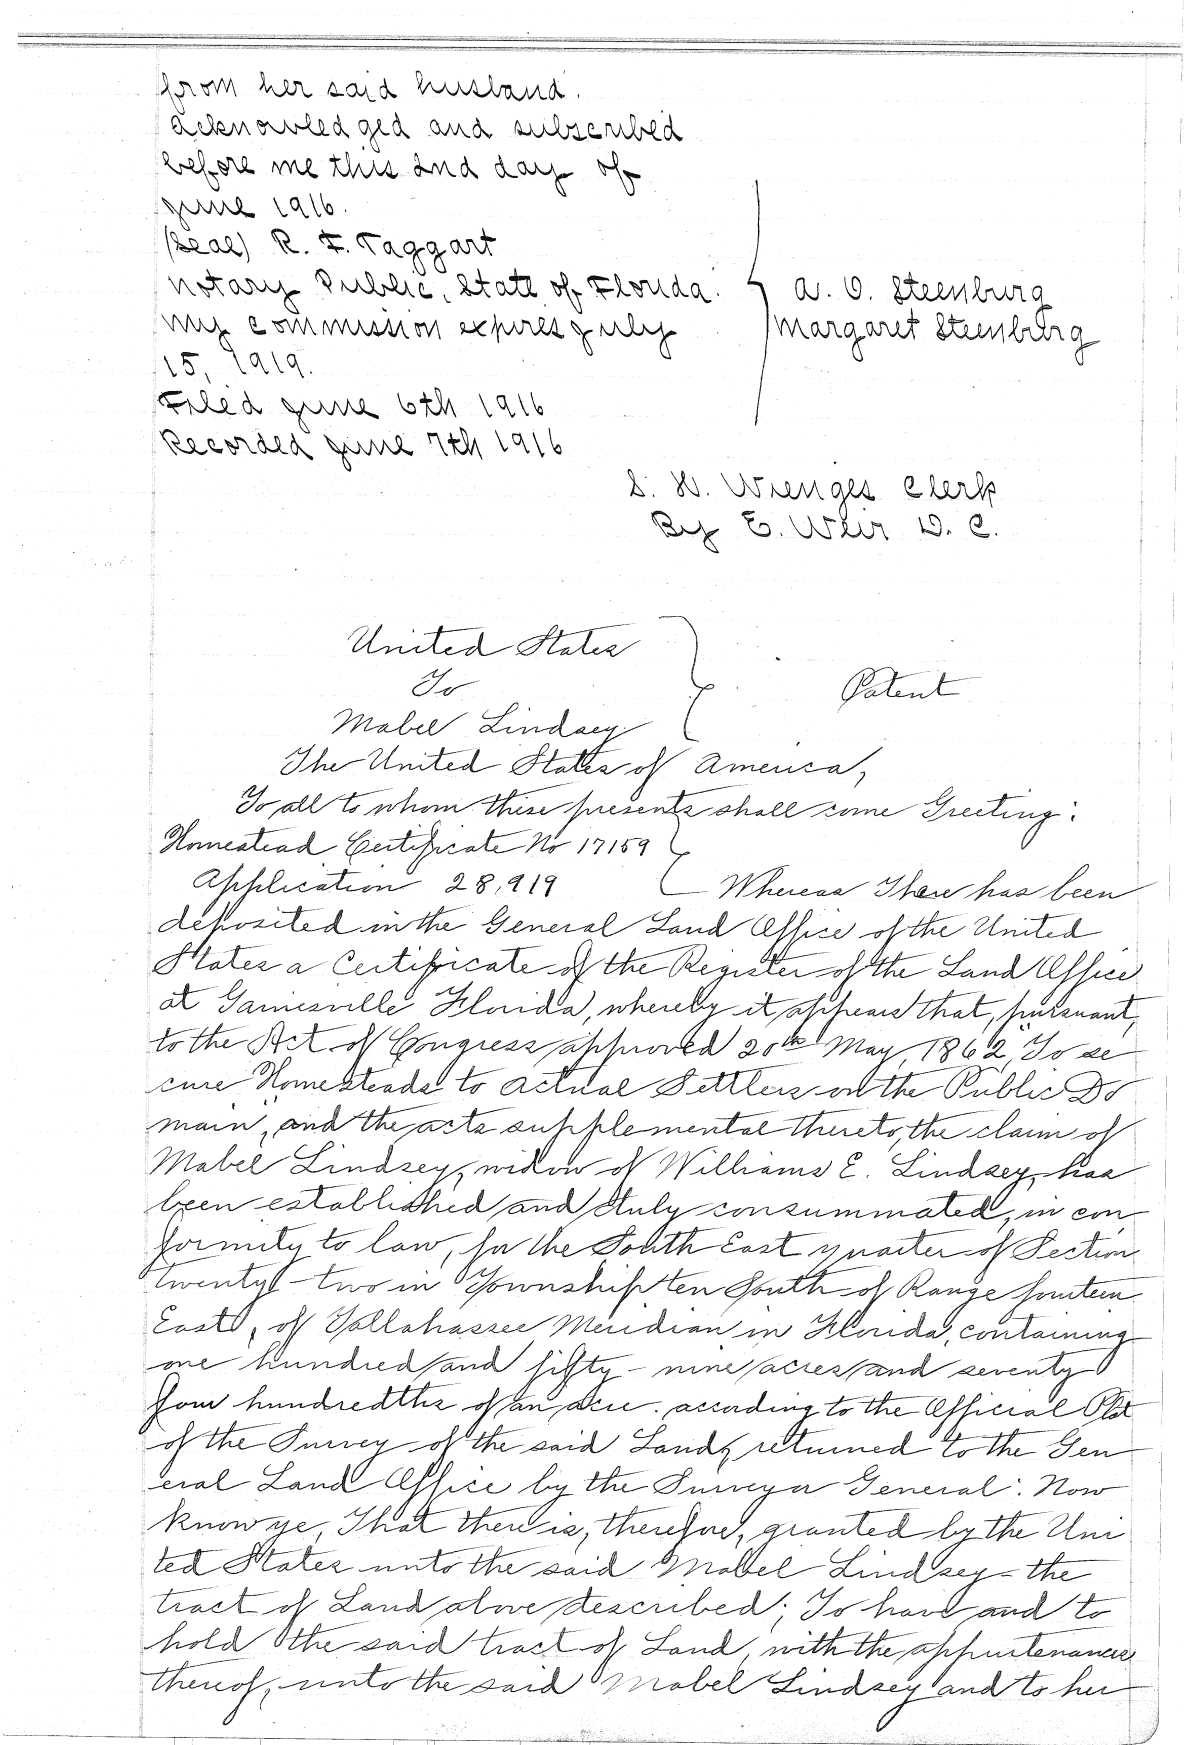 from her said husband.
acknowledged and subscribed
before me this 2nd day of
June 1916.
(Seal) R. F. Taggart
Notary Public, State of Florida.
My commission expires July
15, 1919.
A. O. Steenburg
Margaret Steenburg
Filed June 6th 1916
Recorded June 7th 1916
S. H. Wienges Clerk
By E. Weir D. C.
United States
To
Mabel Lindsey
Patent
The United States of America,
To all to whom these presents shall come Greeting:
Homestead Certificate No 17159
Application 28,919
Whereas There has been
deposited in the General Land Office of the United
States a Certificate of the Register of the Land Office
at Gainesville Florida, whereby it appears that, pursuant,
to the Act of Congress approved 20th May, 1862, "To se
cure Homesteads to Actual Settlers on the Public Do
main", and the acts supplemental thereto, the claim of
Mabel Lindsey, widow of Williams E. Lindsey, has
been established and duly consummated, in con
formity to law, for the South East quarter of Section
twenty-two in Township ten South of Range fourteen
East, of Tallahassee Meridian in Florida, containing
one hundred and fifty-nine acres and seventy
four hundredths of an acre. according to the Official Plat
of the Survey of the said Land, returned to the Gen
eral Land Office by the Surveyor General: Now
know ye, That there is, therefore, granted by the Uni
ted States unto the said Mabel Lindsey - the
tract of Land above described; To have and to
hold the said tract of Land, with the appurtenances
thereof, unto the said Mabel Lindsey and to her